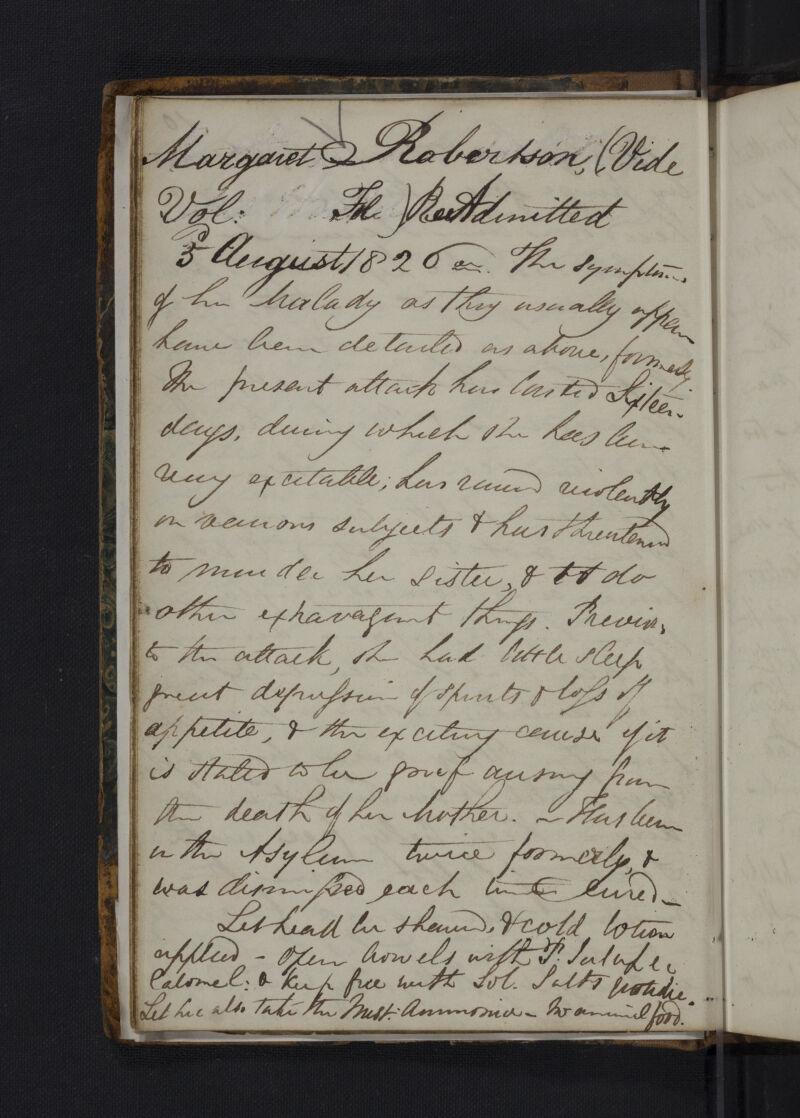 Margaret Robertson, (Vide
Vol: Fol: ) ReAdmitted
5 August 1826 The symptoms
of her Malady as they usually appear
have been detailed as above, formerly.
The present attack has lasted Sixteen
days, during which she has been
very excitable; has raved violently
on various subjects & has threatened
to murder her sister, & to do
other extravagant things. Previous
to the attack, she had little sleep
great depression of spirits & loss of
appetite, & the exciting cause of it
is stated to be grief arising from
the death of her Mother. – Has been
in the Asylum twice formerly, &
was dismissed each time cured –
Let head be shaved, & cold lotion
applied – open bowels with P. Jalap e
Calomel: & keep free with Sol. Salts
Let her also take the Mist. Ammonia – No animal food.